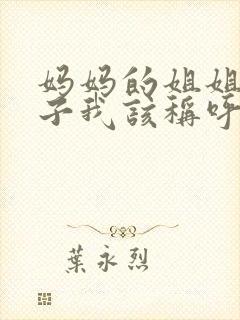 妈妈的姐姐
子我该稱呼
葉永烈